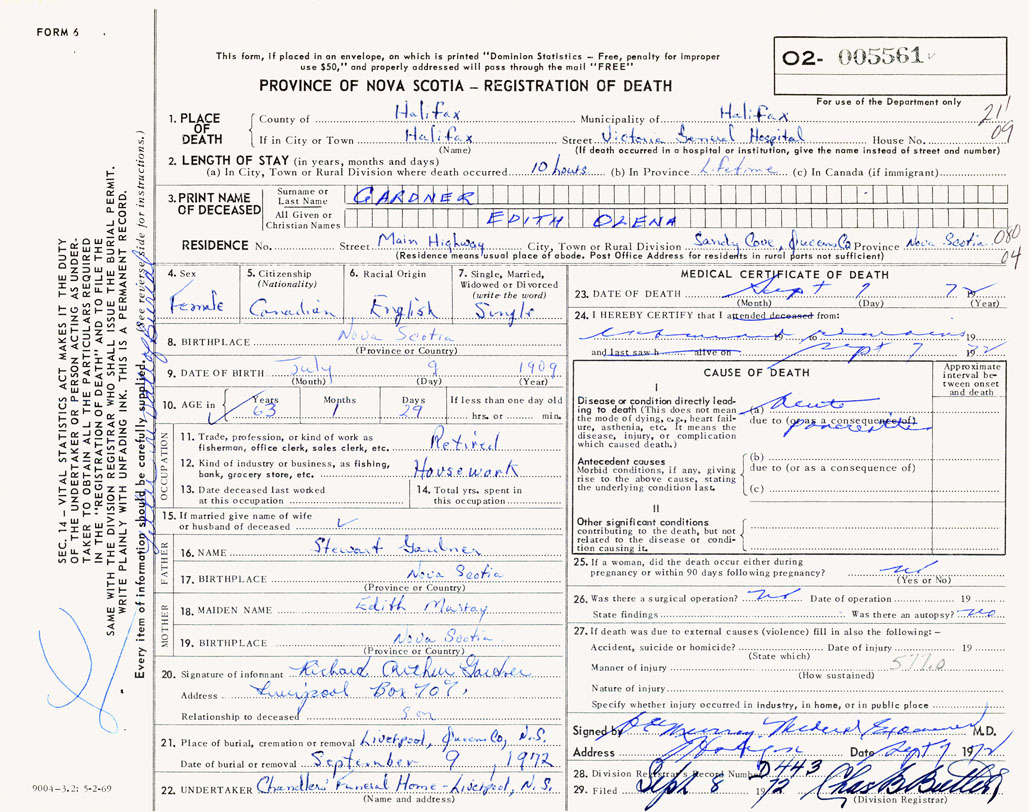 FORM 6
This form, if placed in an envelope, on which is printed "Dominion Statistics – Free, penalty for improper
use $50," and properly addressed will pass through the mail "FREE"
PROVINCE OF NOVA SCOTIA – REGISTRATION OF DEATH
O2- 005561
For use of the Department only
21
09
1. PLACE OF DEATH
County of Halifax Municipality of Halifax
If in City or Town Halifax Street Victoria General Hospital House No.
(Name) (If death occurred in a hospital or institution, give the name instead of street and number)
2. LENGTH OF STAY (in years, months and days)
(a) In City, Town or Rural Division where death occurred 10 hours (b) In Province Lifetime (c) In Canada (if immigrant)
3. PRINT NAME OF DECEASED
Surname or Last Name GARDNER
All Given or Christian Names EDITH OLENA
RESIDENCE No. Street Main Highway City, Town or Rural Division Sandy Cove, Queens Co Province Nova Scotia
080
04
(Residence means usual place of abode. Post Office Address for residents in rural parts not sufficient)
4. Sex
Female
5. Citizenship
(Nationality)
Canadian
6. Racial Origin
English
7. Single, Married,
Widowed or Divorced
(write the word)
Single
8. BIRTHPLACE Nova Scotia
(Province or Country)
9. DATE OF BIRTH July 9 1909
(Month) (Day) (Year)
10. AGE in Years 63 Months 1 Days 29
If less than one day old
hrs. or min.
OCCUPATION
11. Trade, profession, or kind of work as
fisherman, office clerk, sales clerk, etc. Retired
12. Kind of industry or business, as fishing,
bank, grocery store, etc. Housework
13. Date deceased last worked
at this occupation
14. Total yrs. spent in
this occupation
15. If married give name of wife
or husband of deceased
FATHER
16. NAME Stewart Gardner
17. BIRTHPLACE Nova Scotia
(Province or Country)
MOTHER
18. MAIDEN NAME Edith
19. BIRTHPLACE Nova Scotia
(Province or Country)
20. Signature of informant Richard Arthur Gardner
Address Liverpool Box 707
Relationship to deceased son
21. Place of burial, cremation or removal Liverpool, Queens Co, N.S.
Date of burial or removal September 9, 1972
22. UNDERTAKER Chandlers Funeral Home – Liverpool, N.S.
(Name and address)
MEDICAL CERTIFICATE OF DEATH
23. DATE OF DEATH Sept 7 72 19
(Month) (Day) (Year)
24. I HEREBY CERTIFY that I attended deceased from:
examined remains 19 to 19
and last saw h alive on Sept 7 1972
CAUSE OF DEATH
Approximate
interval be-
tween onset
and death
I
Disease or condition directly lead-
ing to death (This does not mean
the mode of dying, e.g., heart fail-
ure, asthenia, etc. It means the
disease, injury, or complication
which caused death.)
(a) Acute
due to (or as a consequence of)
pancreatitis
Antecedent causes
Morbid conditions, if any, giving
rise to the above cause, stating
the underlying condition last.
(b)
due to (or as a consequence of)
(c)
II
Other significant conditions
contributing to the death, but not
related to the disease or condi-
tion causing it.
25. If a woman, did the death occur either during
pregnancy or within 90 days following pregnancy? no
(Yes or No)
26. Was there a surgical operation? no Date of operation 19
State findings Was there an autopsy? no
27. If death was due to external causes (violence) fill in also the following: –
Accident, suicide or homicide? Date of injury 19
(State which)
577.0
Manner of injury
(How sustained)
Nature of injury
Specify whether injury occurred in industry, in home, or in public place
Signed by Medical Examiner M.D.
Address Halifax Date Sept 7 1972
28. Division Registrar's Record Number 2443
29. Filed Sept 8 1972 Chas B Butler
(Division Registrar)
SEC. 14 – VITAL STATISTICS ACT MAKES IT THE DUTY
OF THE UNDERTAKER OR PERSON ACTING AS UNDER-
TAKER TO OBTAIN ALL THE PARTICULARS REQUIRED
IN THE "REGISTRATION OF DEATH" AND TO FILE THE
SAME WITH THE DIVISION REGISTRAR WHO SHALL ISSUE THE BURIAL PERMIT.
WRITE PLAINLY WITH UNFADING INK. THIS IS A PERMANENT RECORD.
Every item of information should be carefully supplied. (See reverse side for instructions.)
9004-3.2: 5-2-69